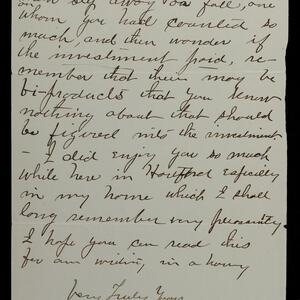 self away on a fall, one
whom you had counted so
much, and then wonder if
the investment paid, re-
member that there may be
bi-products that you know
nothing about that should
be figured into the investment
- I did enjoy you so much
while here in Hartford especially
in my home which I shall
long remember very pleasantly.
I hope you can read this
for am writing in a hurry
Very Truly Yours